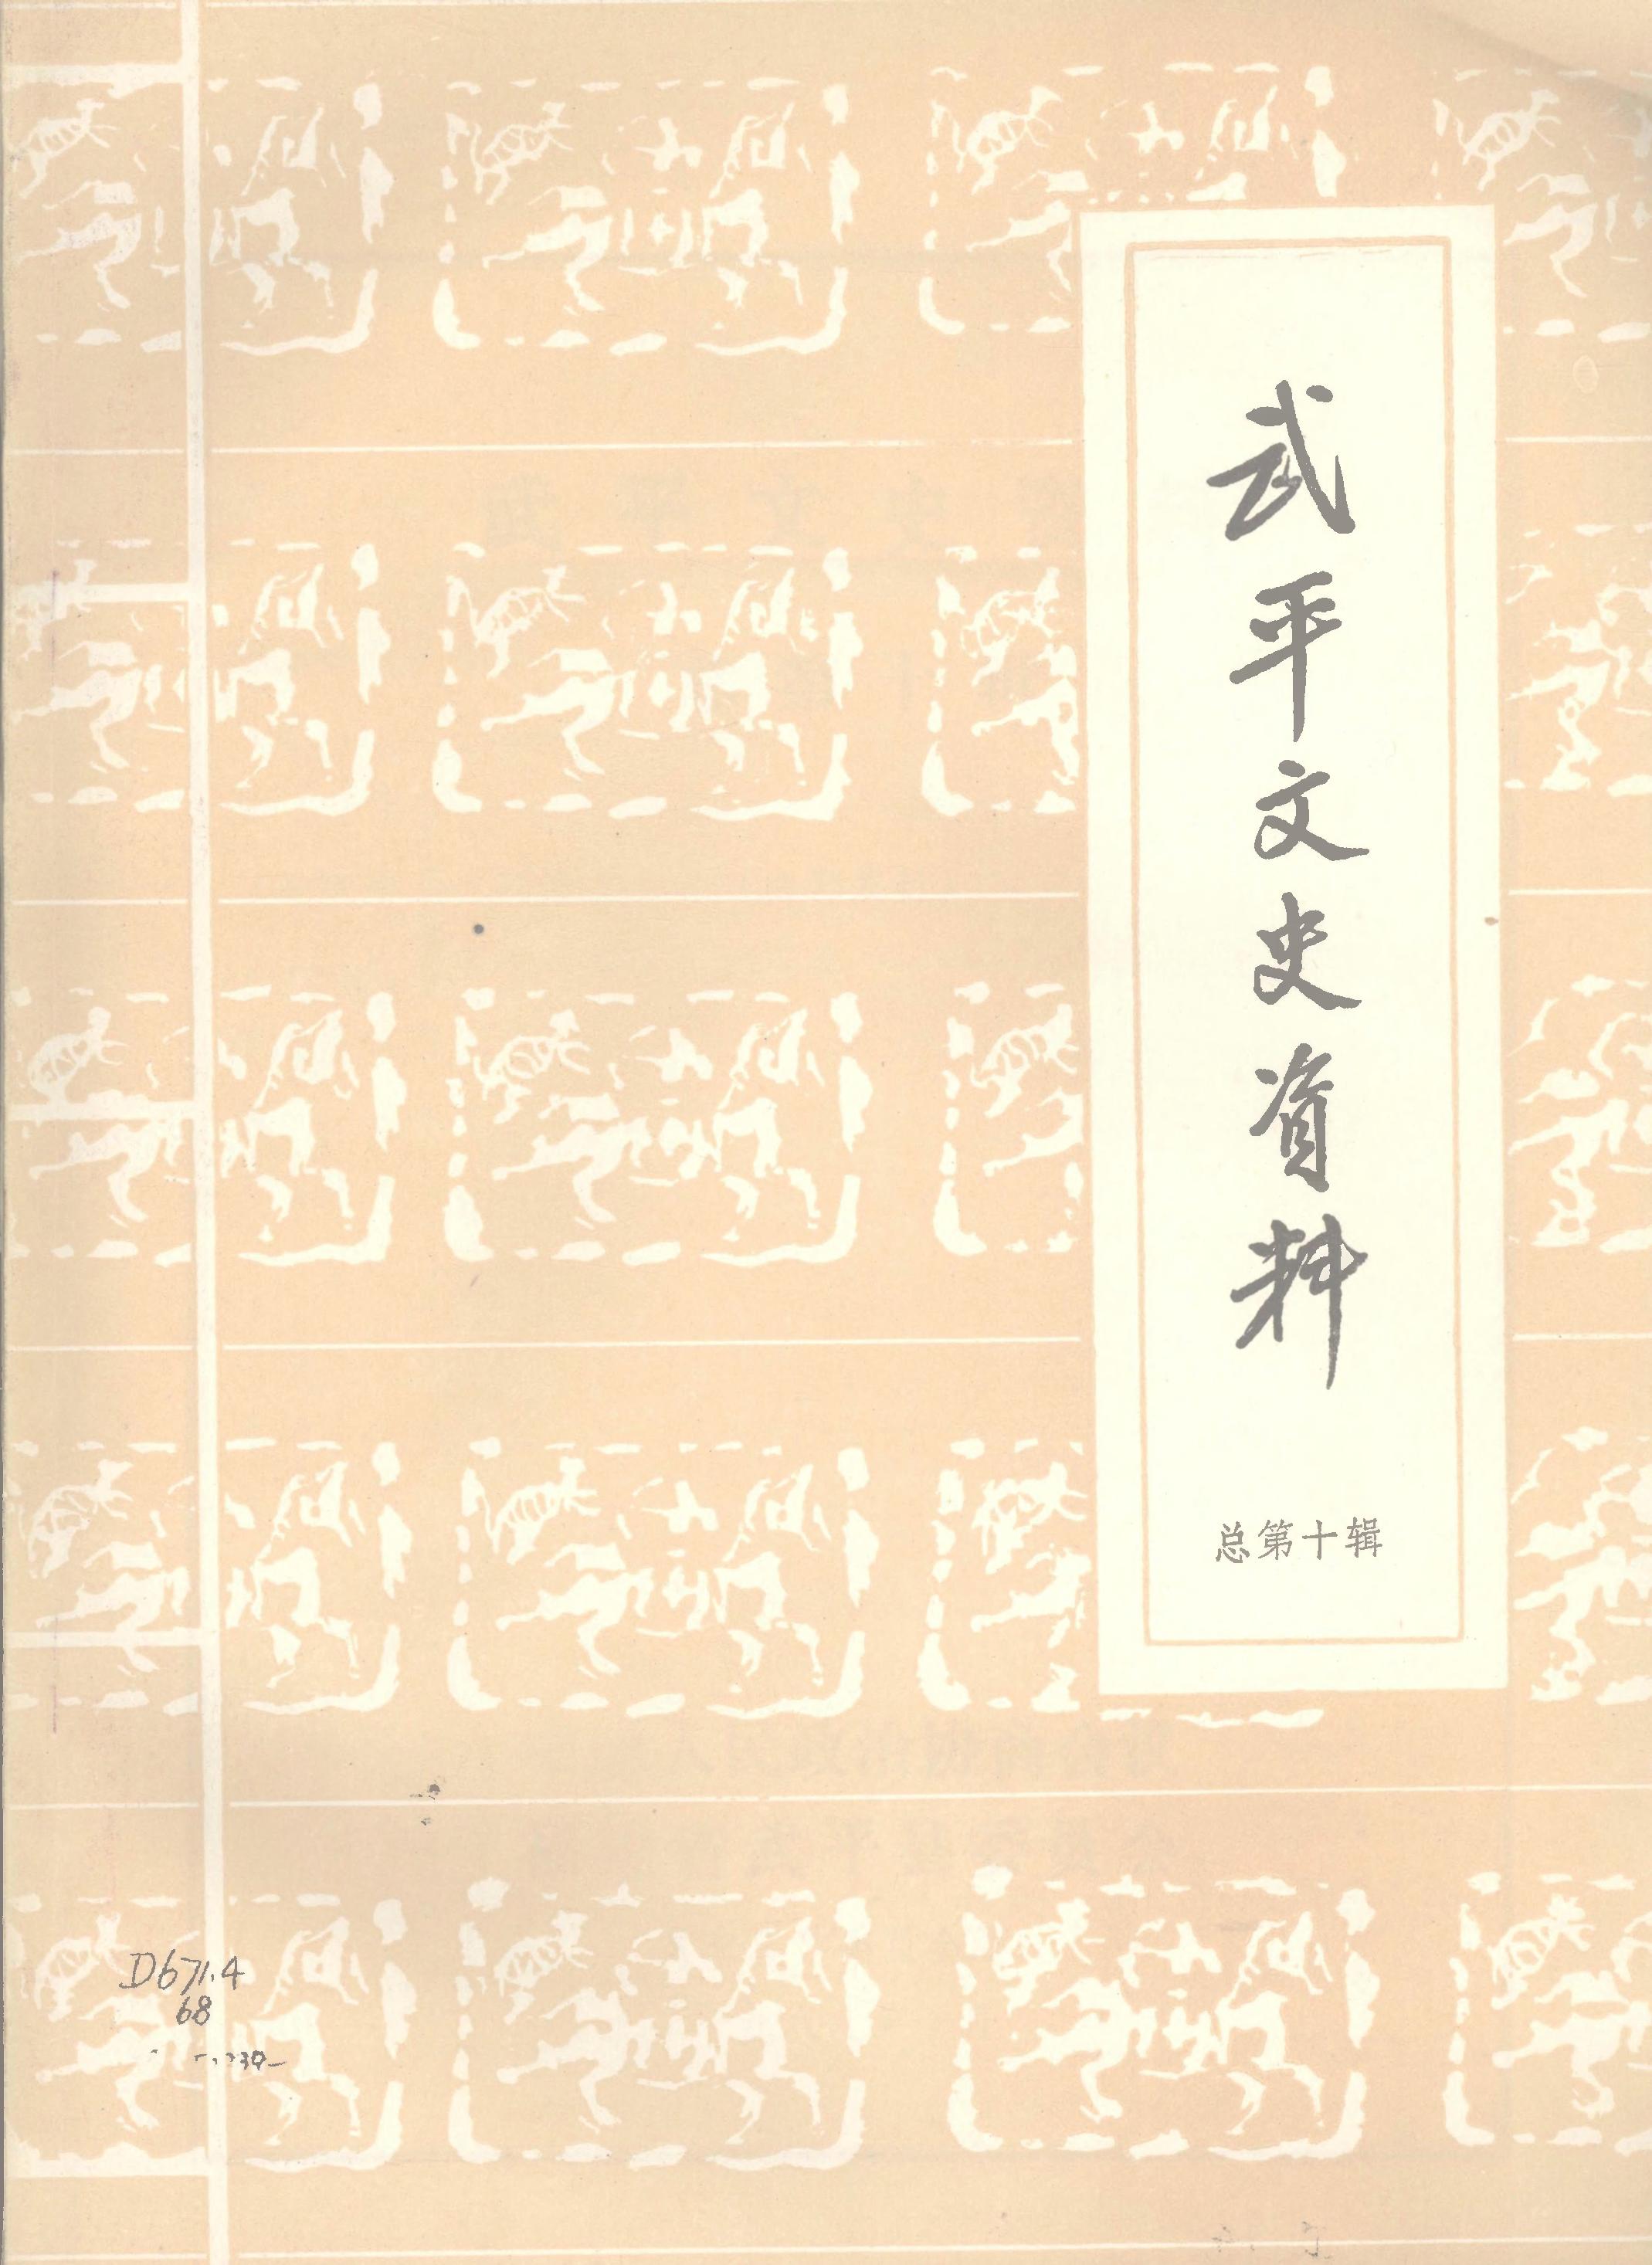 武平文史资料
总第十辑
D671.4
68